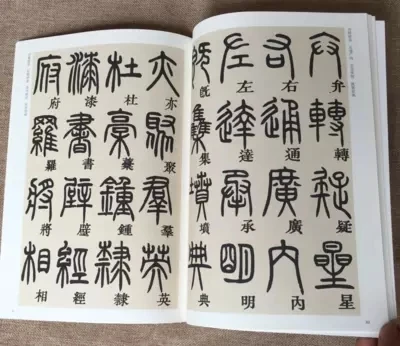 弁轉疑星
右通廣內
左達承明
既集墳典
亦聚羣英
杜稾鍾隸
漆書壁經
府羅將相